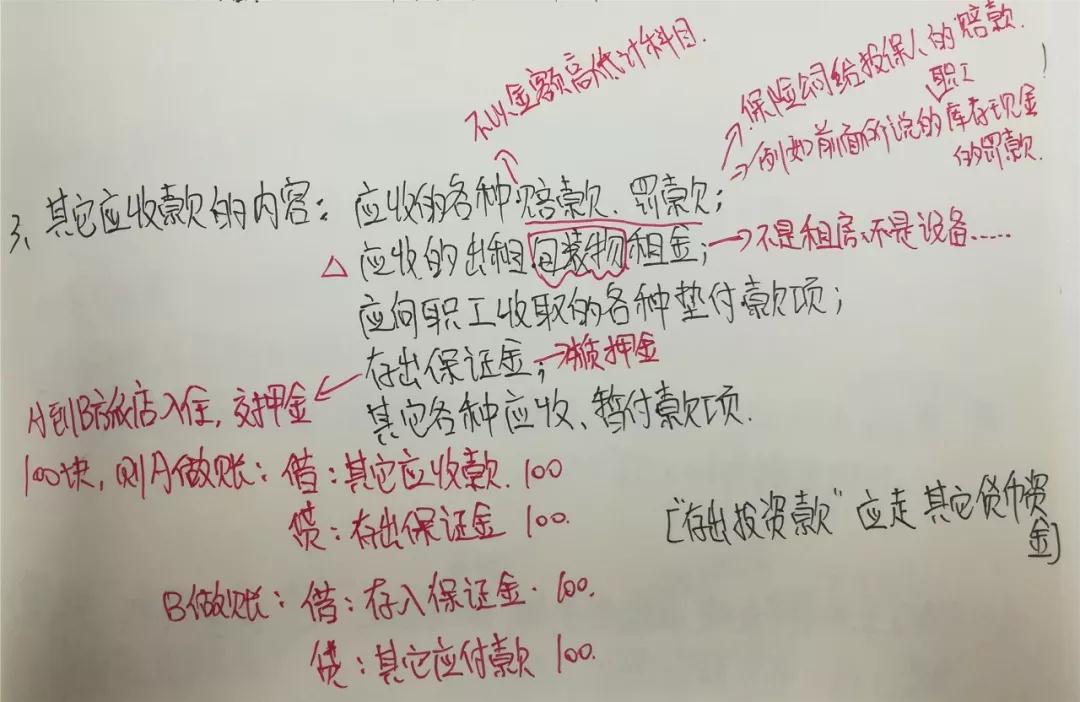 不以金额高低计科目.
保险公司给投保人的赔款.
职工
例如前面所说的库存现金
的罚款.
3、其它应收款的内容：应收的各种赔款、罚款；
△ 应收的出租包装物租金；→不是租房、不是设备……
应向职工收取的各种垫付款项；
存出保证金；→类质押金
其它各种应收、暂付款项.
A到B旅店入住，交押金
100块，则A做账：借：其它应收款.100
贷：存出保证金 100.
["存出投资款"应走其它货币资
金]
B做账：借：存入保证金.100.
贷：其它应付款 100.